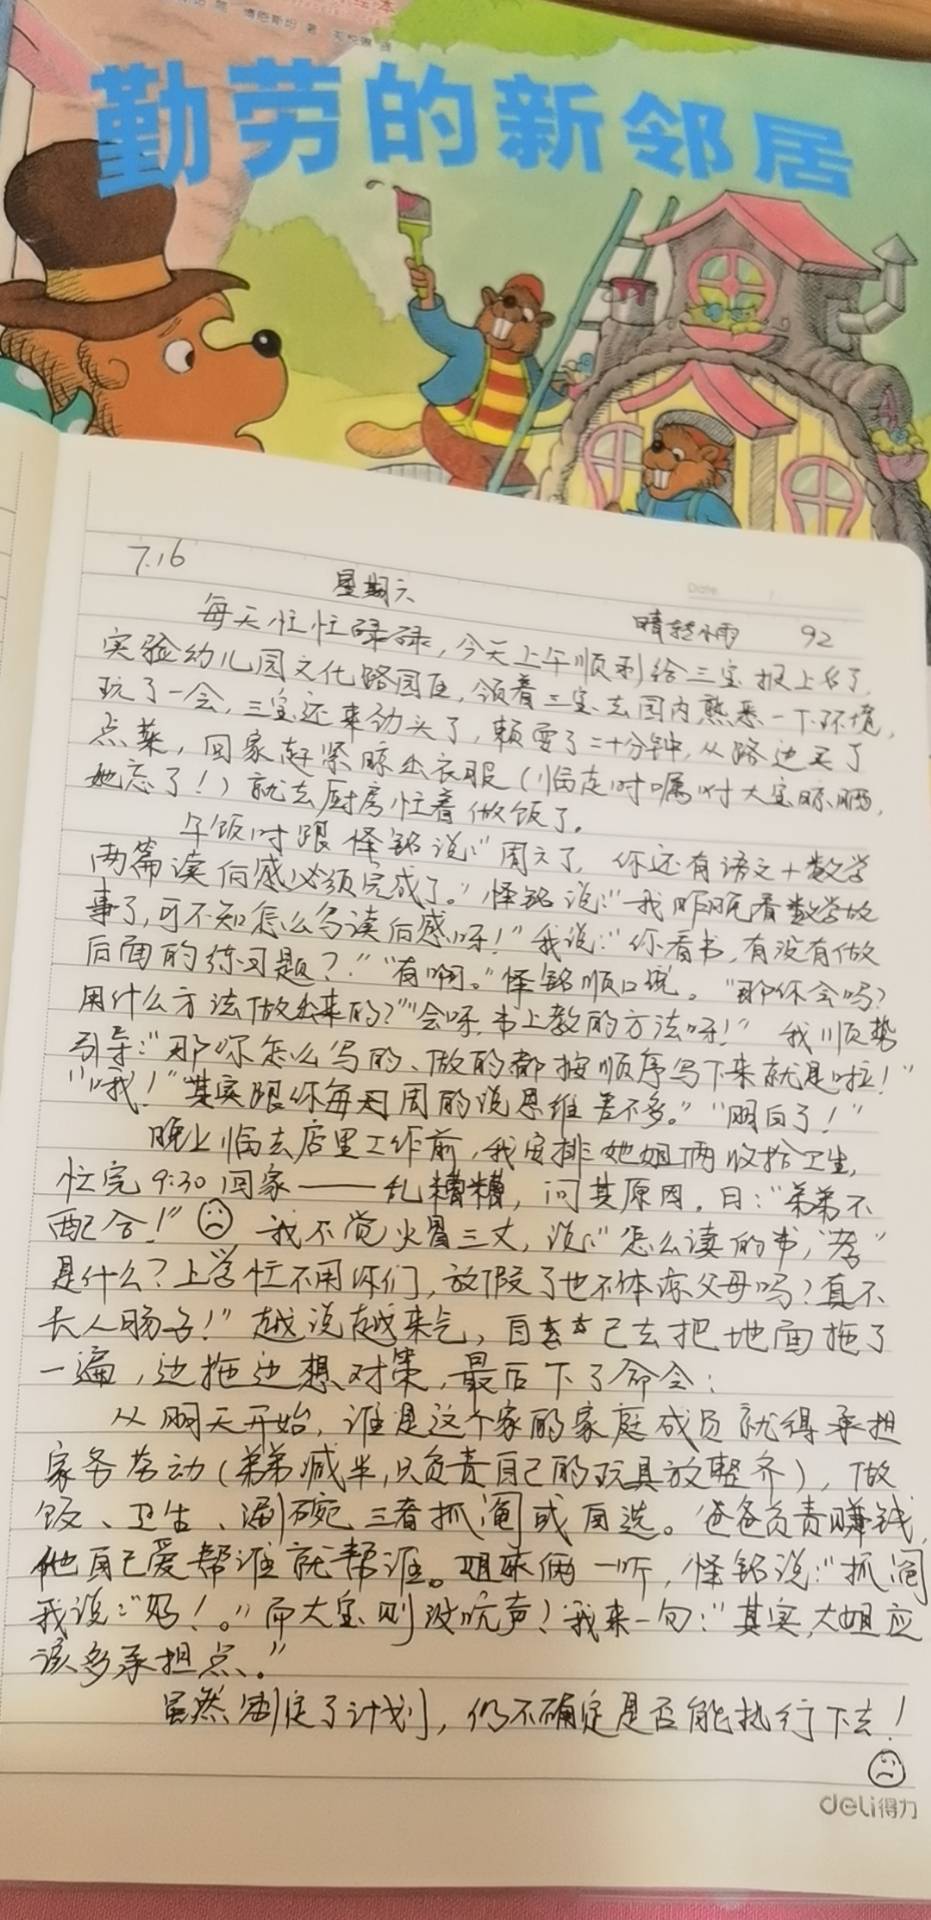 勤劳的新邻居
7.16 星期六 晴转小雨 92
Date
每天忙忙碌碌，今天上午顺利给三宝报上名了，
实验幼儿园文化路园区，领着三宝去园内熟悉一下环境，
玩了一会，三宝还来劲头了，赖耍了二十分钟，从路边买了
点菜，回家赶紧晾出衣服（临走时嘱咐大宝晾晒，
她忘了！）就去厨房忙着做饭了。
午饭时跟怪铭说：“周六了，你还有语文+数学
两篇读后感必须完成了。”怪铭说：“我昨晚看数学故
事了，可不知怎么写读后感呀！”我说：“你看书，有没有做
后面的练习题？”“有啊。”怪铭顺口说。“那你会吗？
用什么方法做出来的？”“会呀，书上教的方法呀！”我顺势
引导：“那你怎么写的、做的都按顺序写下来就是啦！”
“哦！”“其实跟你每周的说思维差不多。”“明白了！”
晚上临去店里工作前，我安排她姐俩收拾卫生，
忙完9:30回家——乱糟糟，问其原因，曰：“弟弟不
配合！”我不觉火冒三丈，说：“怎么读的书，‘孝’
是什么？上学忙不用你们，放假了也不体谅父母吗？真不
长人肠子！”越说越来气，自己去把地面拖了
一遍，边拖边想对策，最后下了命令：
从明天开始，谁是这个家的家庭成员就得承担
家务劳动（弟弟减半，只负责自己的玩具放整齐），做
饭、卫生、涮碗三者抓阄或自选。爸爸负责赚钱，
他自己爱帮谁就帮谁。姐妹俩一听，怪铭说：“抓阄
我说：“好！。”而大宝则没吭声！我来一句：“其实，大姐应
该多承担点。”
虽然制定了计划，仍不确定是否能执行下去！
deli得力